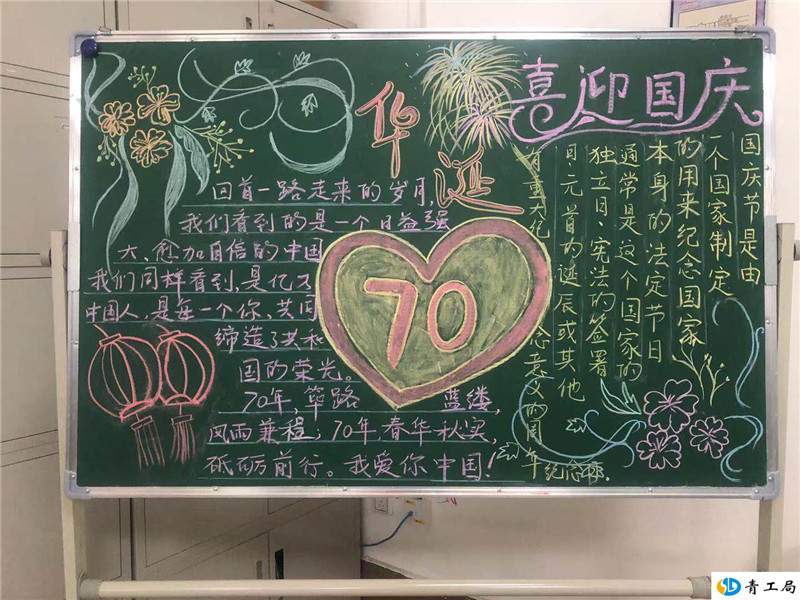 喜迎国庆
华诞
70
回首一路走来的岁月,
我们看到的是一个日益强
大、愈加自信的中国
我们同样看到,是亿万
中国人,是每一个你,共同
缔造了共和
国的荣光。
70年,筚路 蓝缕,
风雨兼程;70年,春华秋实,
砥砺前行。我爱你中国!
国庆节是由
一个国家制定
的用来纪念国家
本身的法定节日
通常是这个国家的
独立日 宪法的签署
日元首为诞辰或其他
有重大纪念意义的周年纪念
青工局